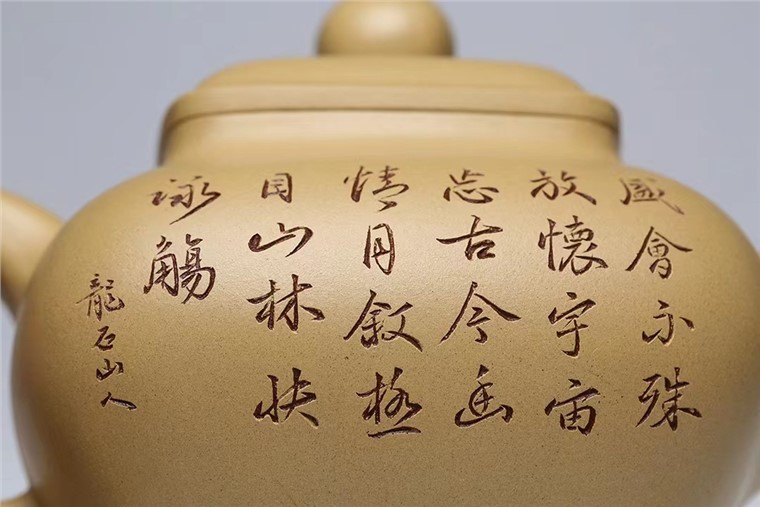 盛會不殊
放懷宇宙
忘古今幽
情用敘極
目山林快
詠觴
龍石山人